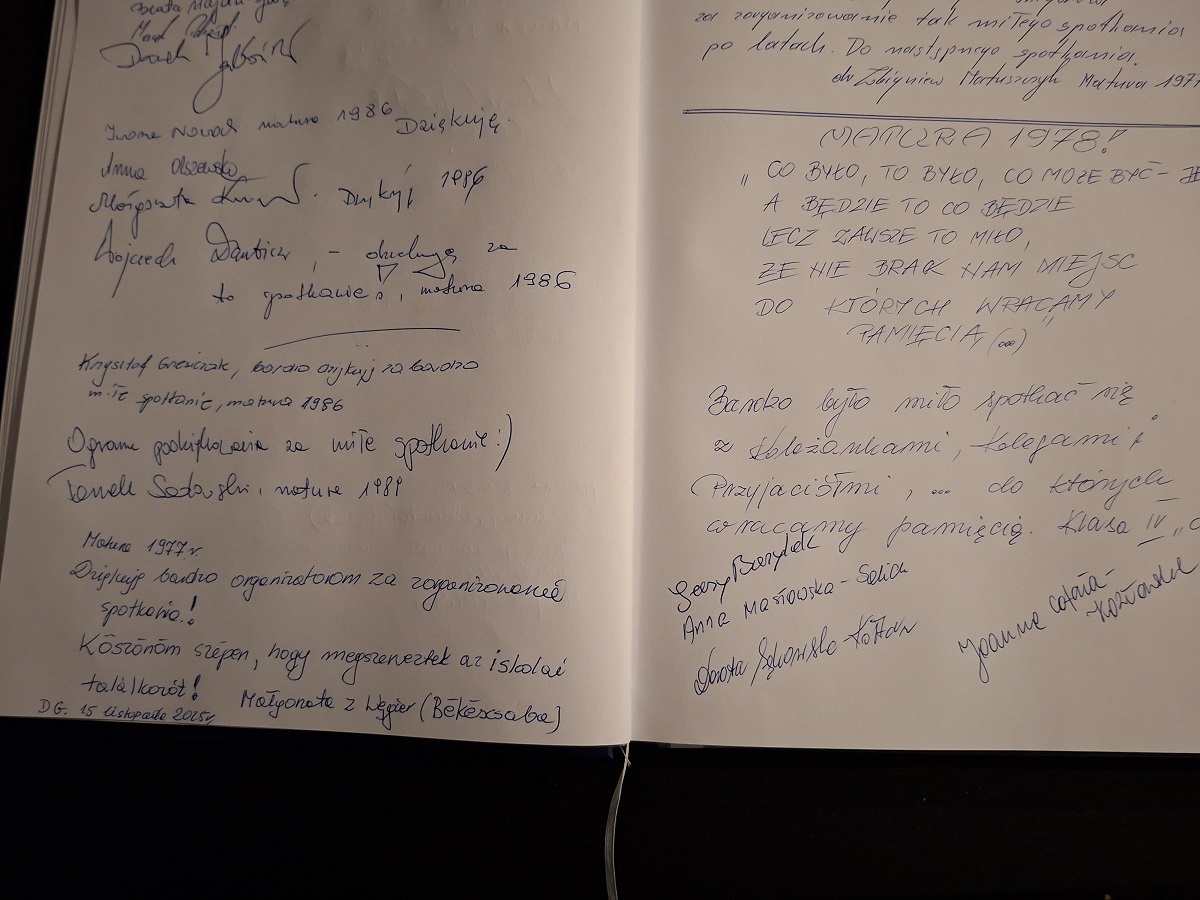 Iwona Nowak matura 1986 Dziękuję.
Anna Olszewska
Małgorzata Dziękuję 1986
Wojciech – dziękuję za
to spotkanie, matura 1986
Krzysztof bardzo dziękuję za bardzo
miłe spotkanie, matura 1986
Ogromne podziękowania za miłe spotkanie :)
Tomek Sadowski, matura 1989
Matura 1977 r.
Dziękuję bardzo organizatorom za zorganizowanie
spotkania!
Köszönöm szépen, hogy megszerveztek az iskolai
találkozót!
Małgorzata z Węgier (Békéscsaba)
DG. 15 listopada 2025r,
za zorganizowanie tak miłego spotkania
po latach. Do następnego spotkania.
Zbigniew Matuszczyk Matura 197
MATURA 1978!
„CO BYŁO, TO BYŁO, CO MOŻE BYĆ –
A BĘDZIE TO CO BĘDZIE
LECZ ZAWSZE TO MIŁO,
ŻE NIE BRAK NAM MIEJSC
DO KTÓRYCH WRACAMY
PAMIĘCIĄ (...)"
Bardzo było miło spotkać się
z Koleżankami, Kolegami i
Przyjaciółmi, ... do których
wracamy pamięcią. Klasa IV „
Anna Masłowska-Salich
Dorota
Joanna
Kozłowska